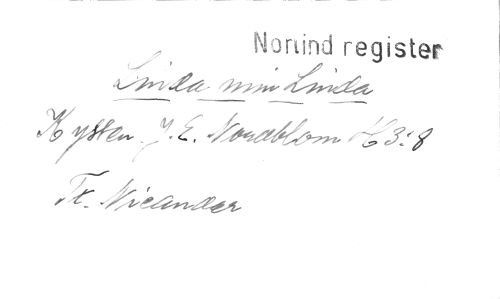 Norlind register
Linda min Linda
Kyssen J. E. Nordblom H 3:8
Fr. Nicander